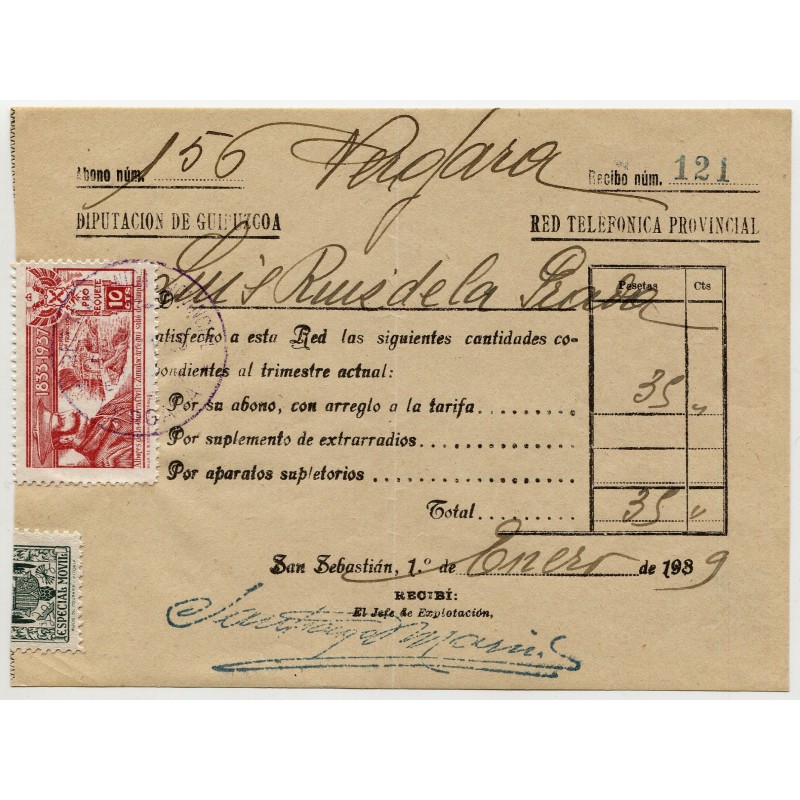 Abono núm. 156 Vergara Recibo núm. 121
DIPUTACION DE GUIPUZCOA RED TELEFONICA PROVINCIAL
D. Luis Ruiz de la Prada
Pesetas Cts
atisfecho a esta Red las siguientes cantidades co-
pondientes al trimestre actual:
Por su abono, con arreglo a la tarifa 35 "
Por suplemento de extrarradios
Por aparatos supletorios
Total 35 "
San Sebastián, 1.º de Enero de 1939
RECIBÍ:
El Jefe de Explotación,
1833-1937
PRO REQUETE
10 CTS
ESPECIAL MOVIL